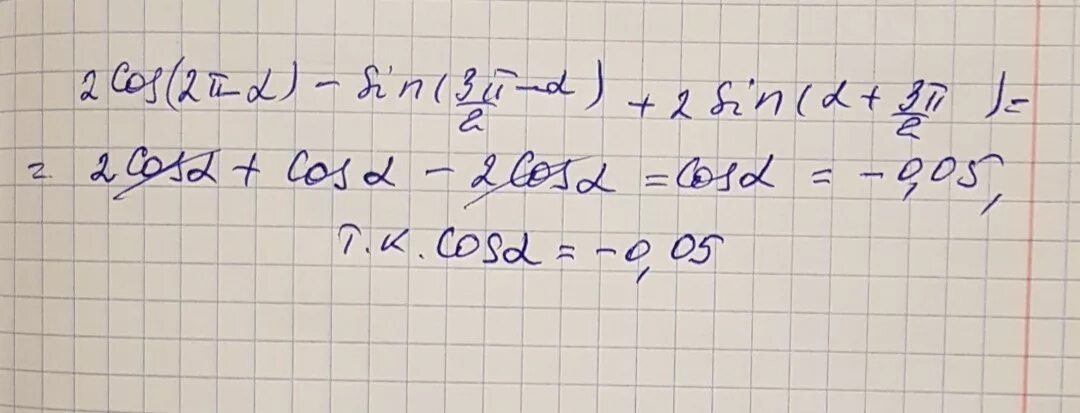 2cos(2π-α) - sin(3π/2 -α) + 2 sin(α + 3π/2 ) =
= 2cosα + cosα - 2cosα = cosα = -0,05,
т.к. cosα = -0,05